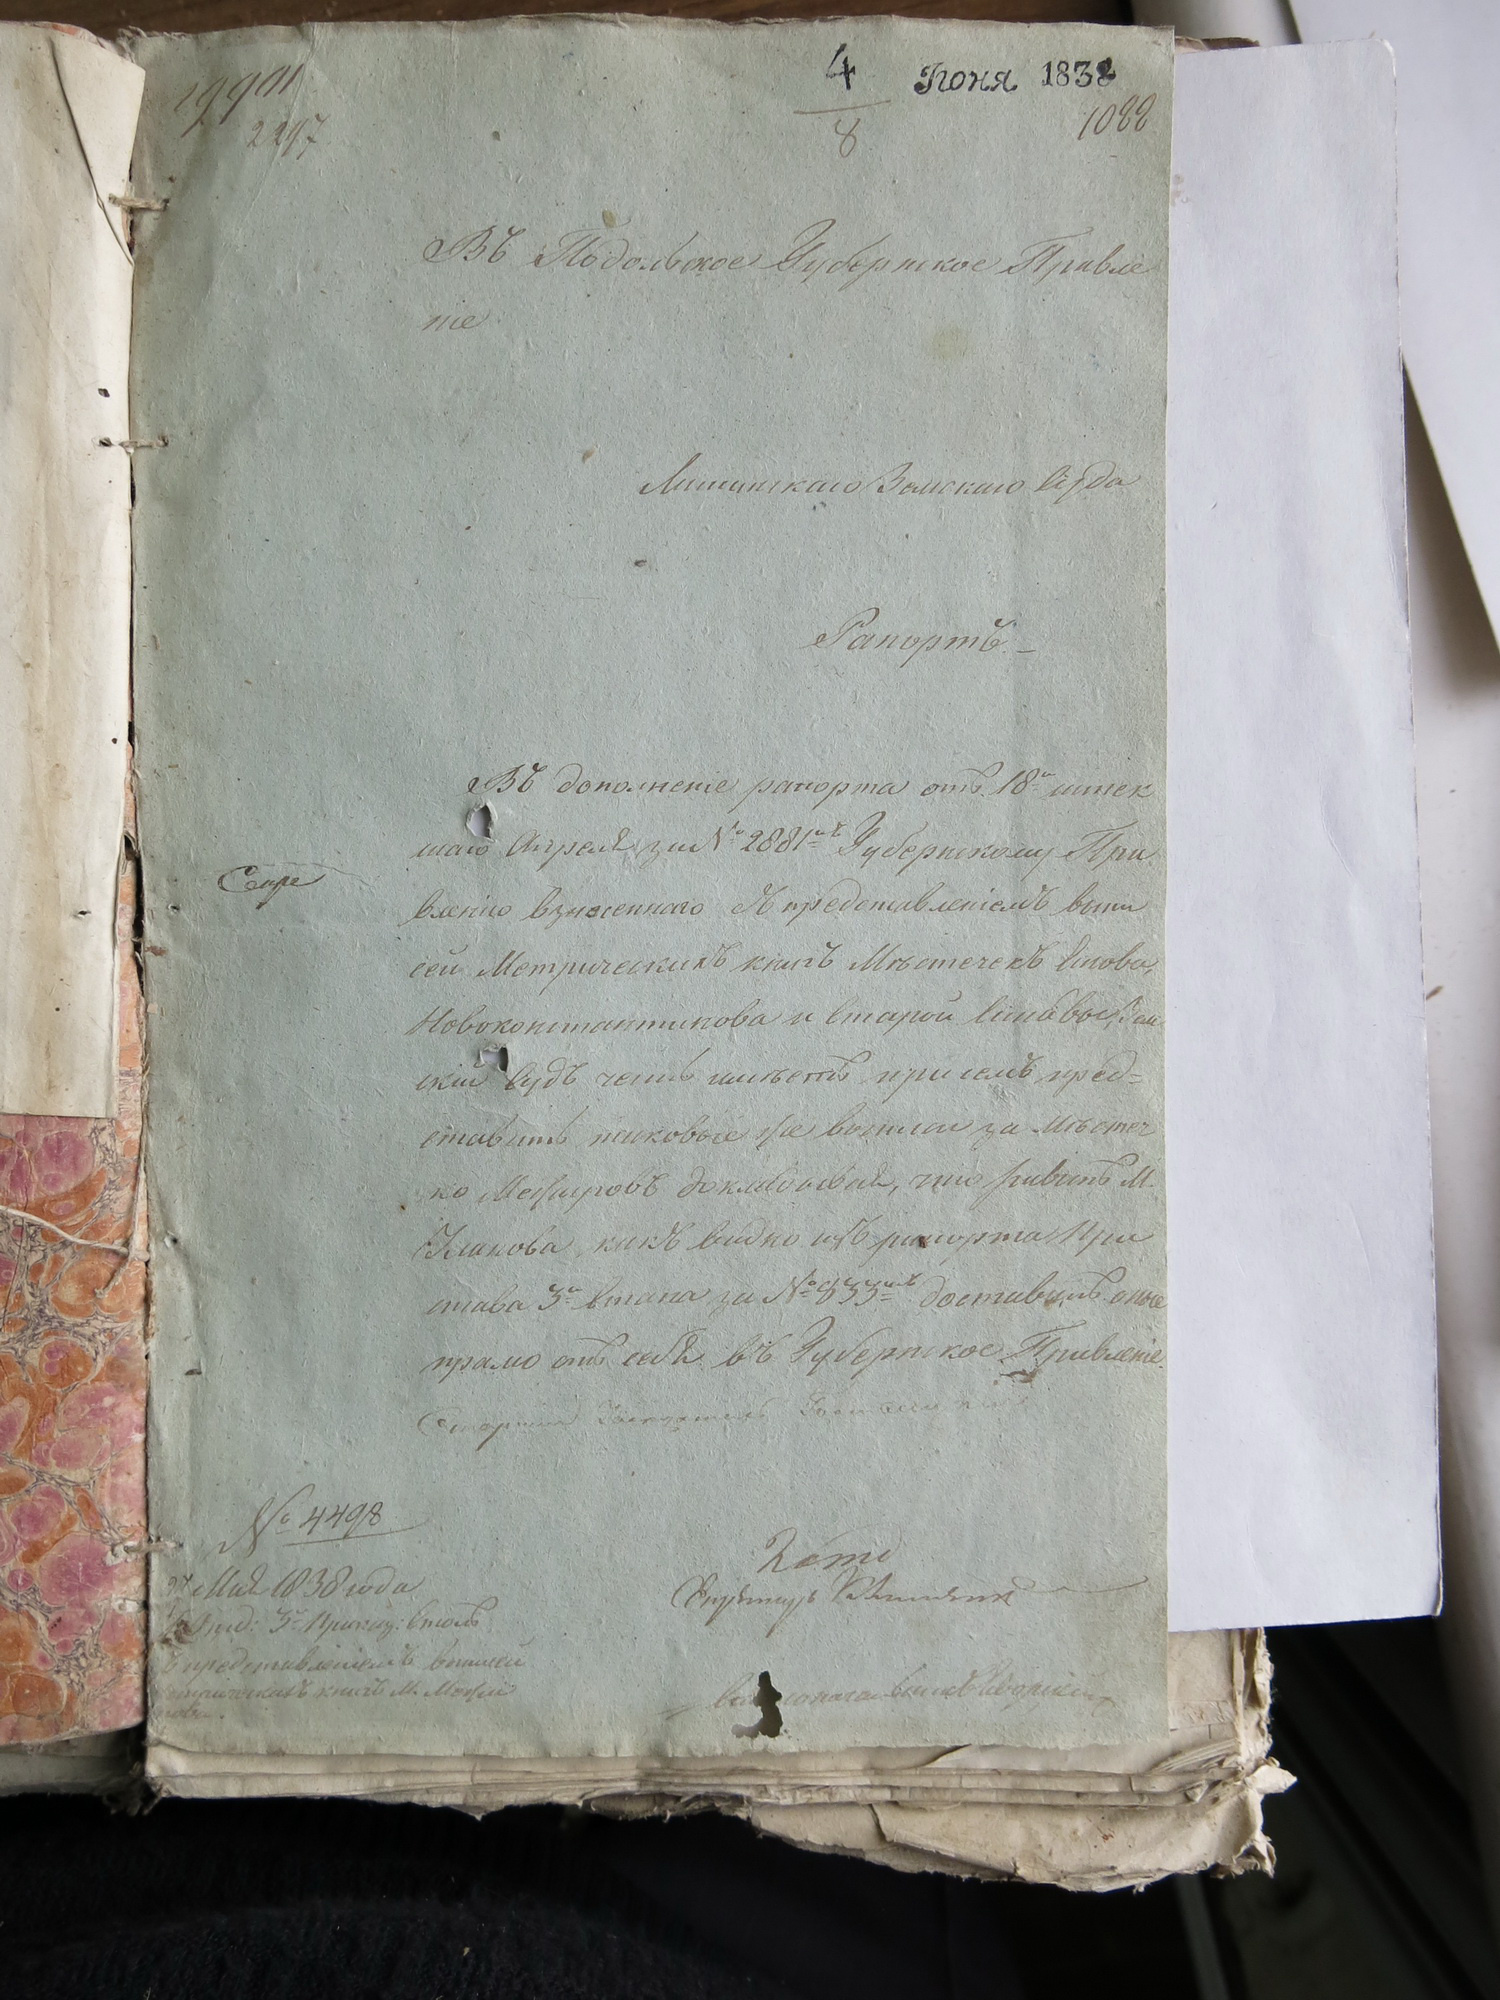 2297
4 Июня 1838
8
1088
Въ Подольское Губернское Правле
ніе
Литинскаго Земскаго Суда
Рапортъ
Въ дополненіе рапорта отъ 18го минув
шаго Апреля за № 2881мъ Губернскому Пра
вленію взнесеннаго съ представленіемъ выпи
сей Метрическихъ книгъ Местечекъ
Новоконстантинова и Старой Синявы, Зем
скій Судъ честь имеетъ при семъ пред=
ставить таковые же выписи за Местеч
ко Межировъ докладывая, что равинъ М.
Уланова какъ видно изъ рапорта При
става 3го Стана за № 833мъ доставилъ оные
прямо отъ себя въ Губернское Правленіе
№ 4498
Мая 1838 года
представленіемъ выписей
книгъ М. Межи
рова.